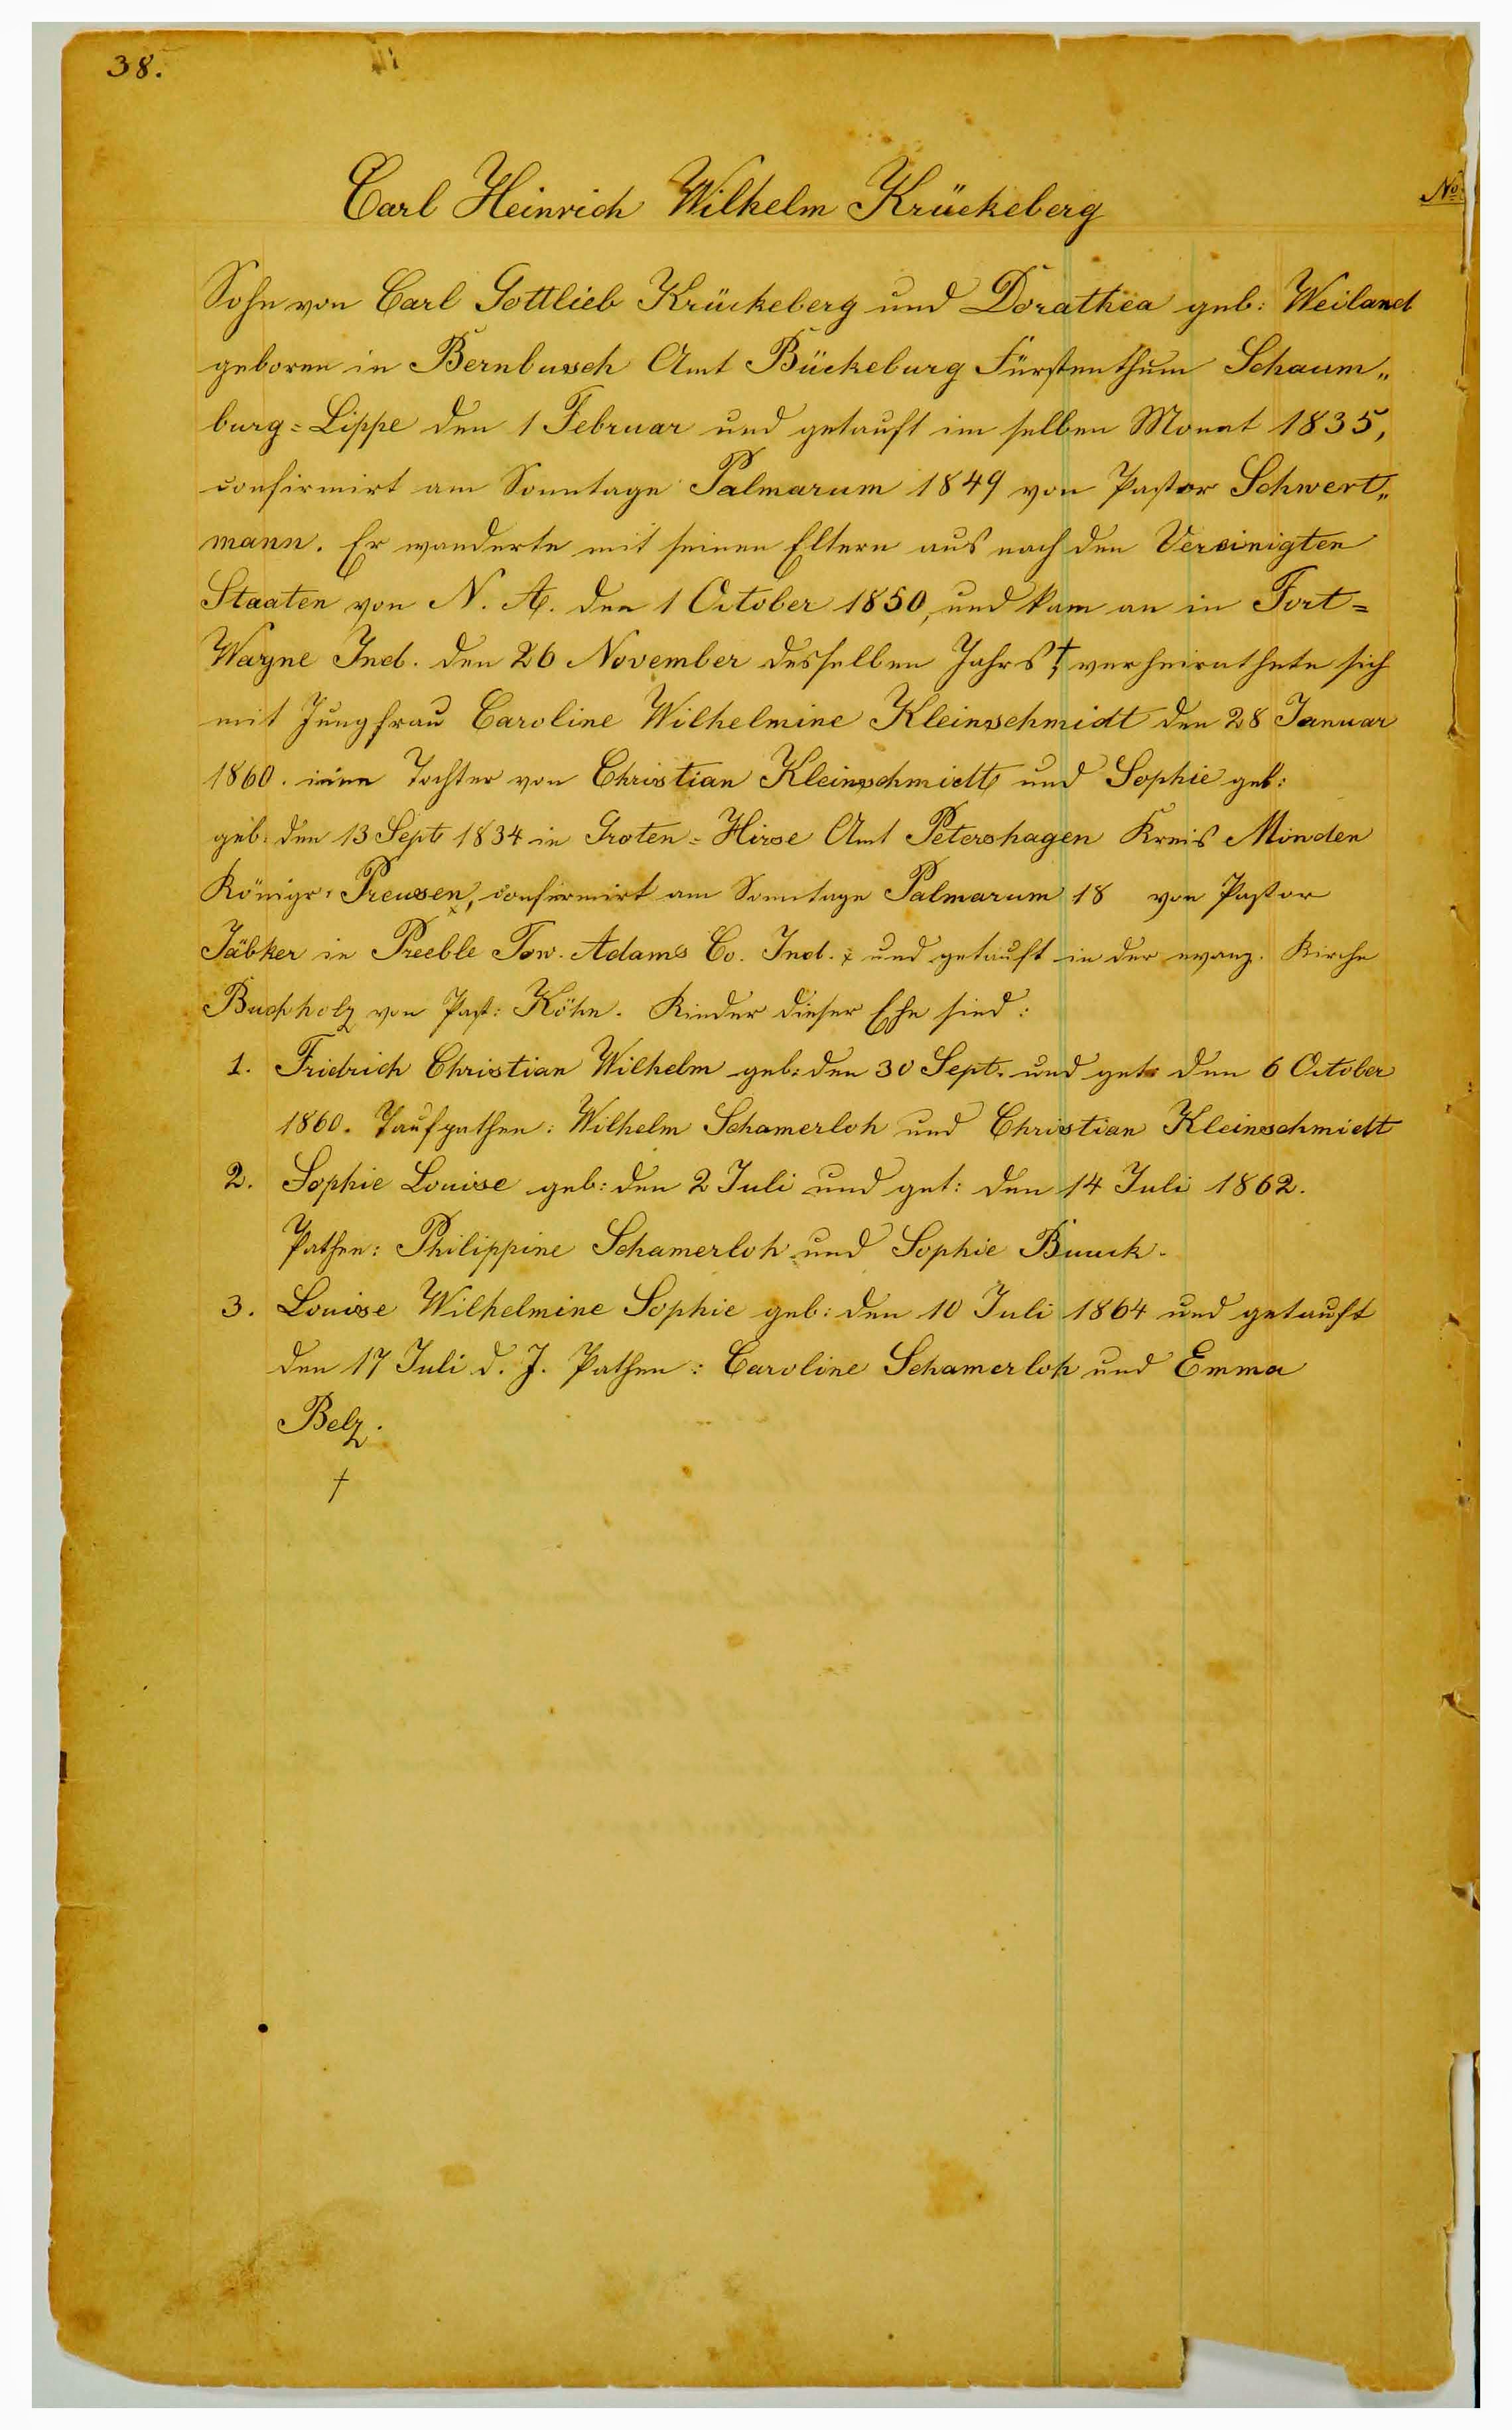 38.
Carl Heinrich Wilhelm Krückeberg
No
Sohn von Carl Gottlieb Krückeberg und Dorathea geb: Weiland
geboren in Bernbusch Amt Bückeburg Fürstenthum Schaum„
burg=Lippe den 1 Februar und getauft im selben Monat 1835,
confirmirt am Sonntage Palmarum 1849 von Pastor Schwert„
mann. Er wanderte mit seinen Eltern aus nach den Vereinigten
Staaten von N. A. den 1 October 1850, und kam an in Fort=
Wayne Ind. den 26 November desselben Jahrs †, verheirathete sich
mit Jungfrau Caroline Wilhelmine Kleinschmidt den 28 Januar
1860. eine Tochter von Christian Kleinschmidt und Sophie geb:
geb: den 13 Sept 1834 in Groten=Hirse Amt Petershagen Kreis Minden
Königr: Preusen, x confirmirt am Sonntage Palmarum 18 von Pastor
Jäbker in Preeble Tow. Adams Co. Ind. x und getauft in der evang. Kirche
Buchholz von Past: Köhn. Kinder dieser Ehe sind:
1. Fridrich Christian Wilhelm geb: den 30 Sept. und get: den 6 October
1860. Taufpathen: Wilhelm Schamerloh und Christian Kleinschmidt
2. Sophie Louise geb: den 2 Juli und get: den 14 Juli 1862.
Pathen: Philippine Schamerloh und Sophie Buuck.
3. Louise Wilhelmine Sophie geb: den 10 Juli 1864 und getauft
den 17 Juli d. J. Pathen: Caroline Schamerloh und Emma
Belz.
†